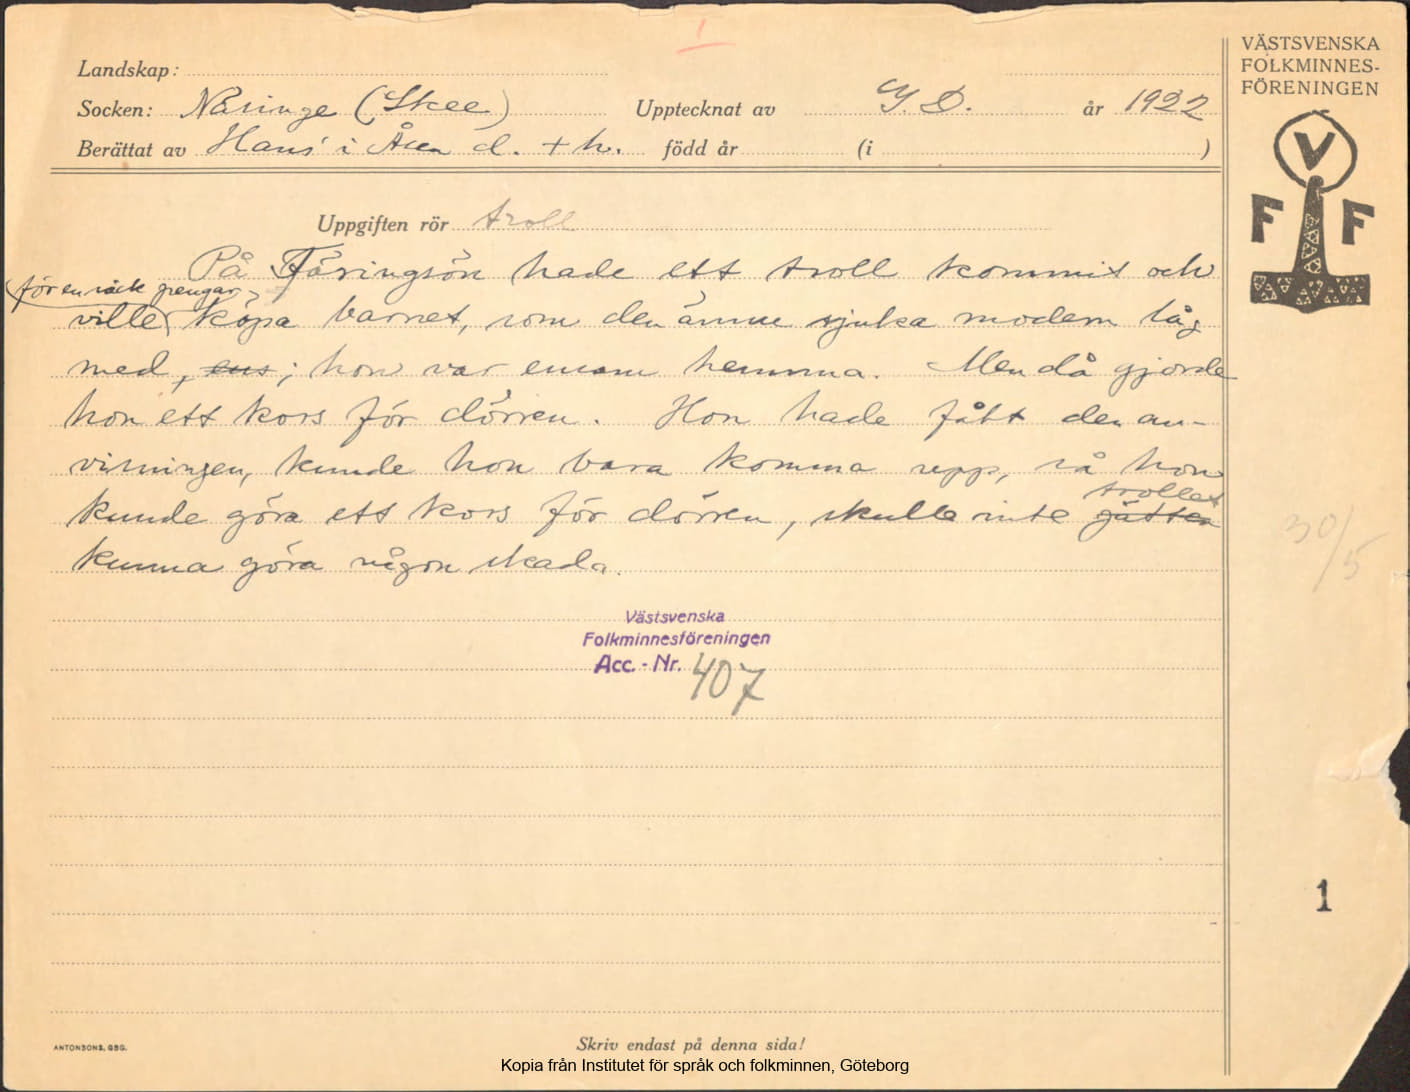 1
VÄSTSVENSKA
FOLKMINNES-
FÖRENINGEN
V
F F
Landskap:
Socken: Näsinge (Skee) Upptecknat av Y. D. år 1922
Berättat av Hans' i Åsen d. + h. född år (i )
Uppgiften rör troll
På Färingsön hade ett troll kommit och
för en säck pengar
ville köpa barnet, som den ännu sjuka modern låg
med, ens; hon var ensam hemma. Men då gjorde
hon ett kors för dörren. Hon hade fått den an-
visningen, kunde hon bara komma upp, så hon
trollet
kunde göra ett kors för dörren, skulle inte jätten
kunna göra någon skada.
30/5
Västsvenska
Folkminnesföreningen
Acc. - Nr. 407
1
ANTONSONS, GBG.
Skriv endast på denna sida!
Kopia från Institutet för språk och folkminnen, Göteborg